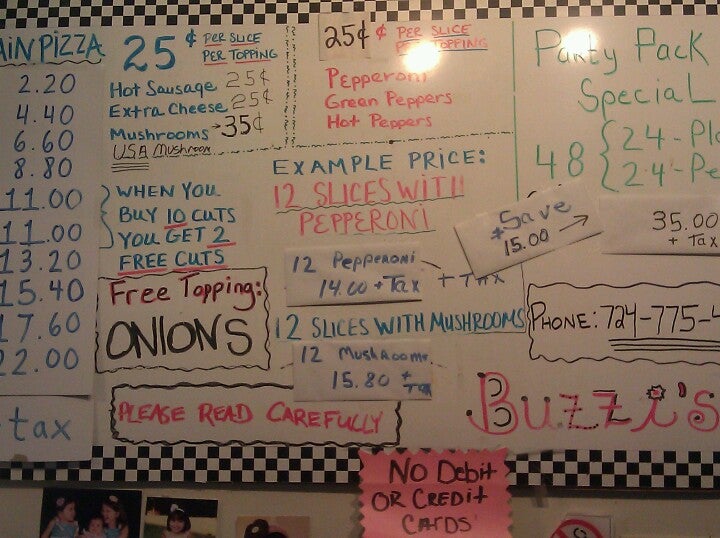 AIN PIZZA
2.20
4.40
6.60
8.80
11.00
11.00
13.20
15.40
17.60
22.00
tax
25¢ PER SLICE
PER TOPPING
Hot Sausage 25¢
Extra Cheese 25¢
Mushrooms 35¢
USA Mushroom
WHEN YOU
BUY 10 CUTS
YOU GET 2
FREE CUTS
Free Topping:
ONIONS
PLEASE READ CAREFULLY
25¢ ¢ PER SLICE
PER TOPPING
Pepperoni
Green Peppers
Hot Peppers
EXAMPLE PRICE:
12 SLICES WITH
PEPPERONI
12 Pepperoni
14.00 + Tax + Tax
12 SLICES WITH MUSHROOMS
12 Mushrooms
15.80 + Tax
Party Pack
Special
48 { 24 - Pl
24 - Pe
Save
15.00
35.00
+ Tax
PHONE: 724-775-4
Buzzi's
NO Debit
OR CREDit
CARDS